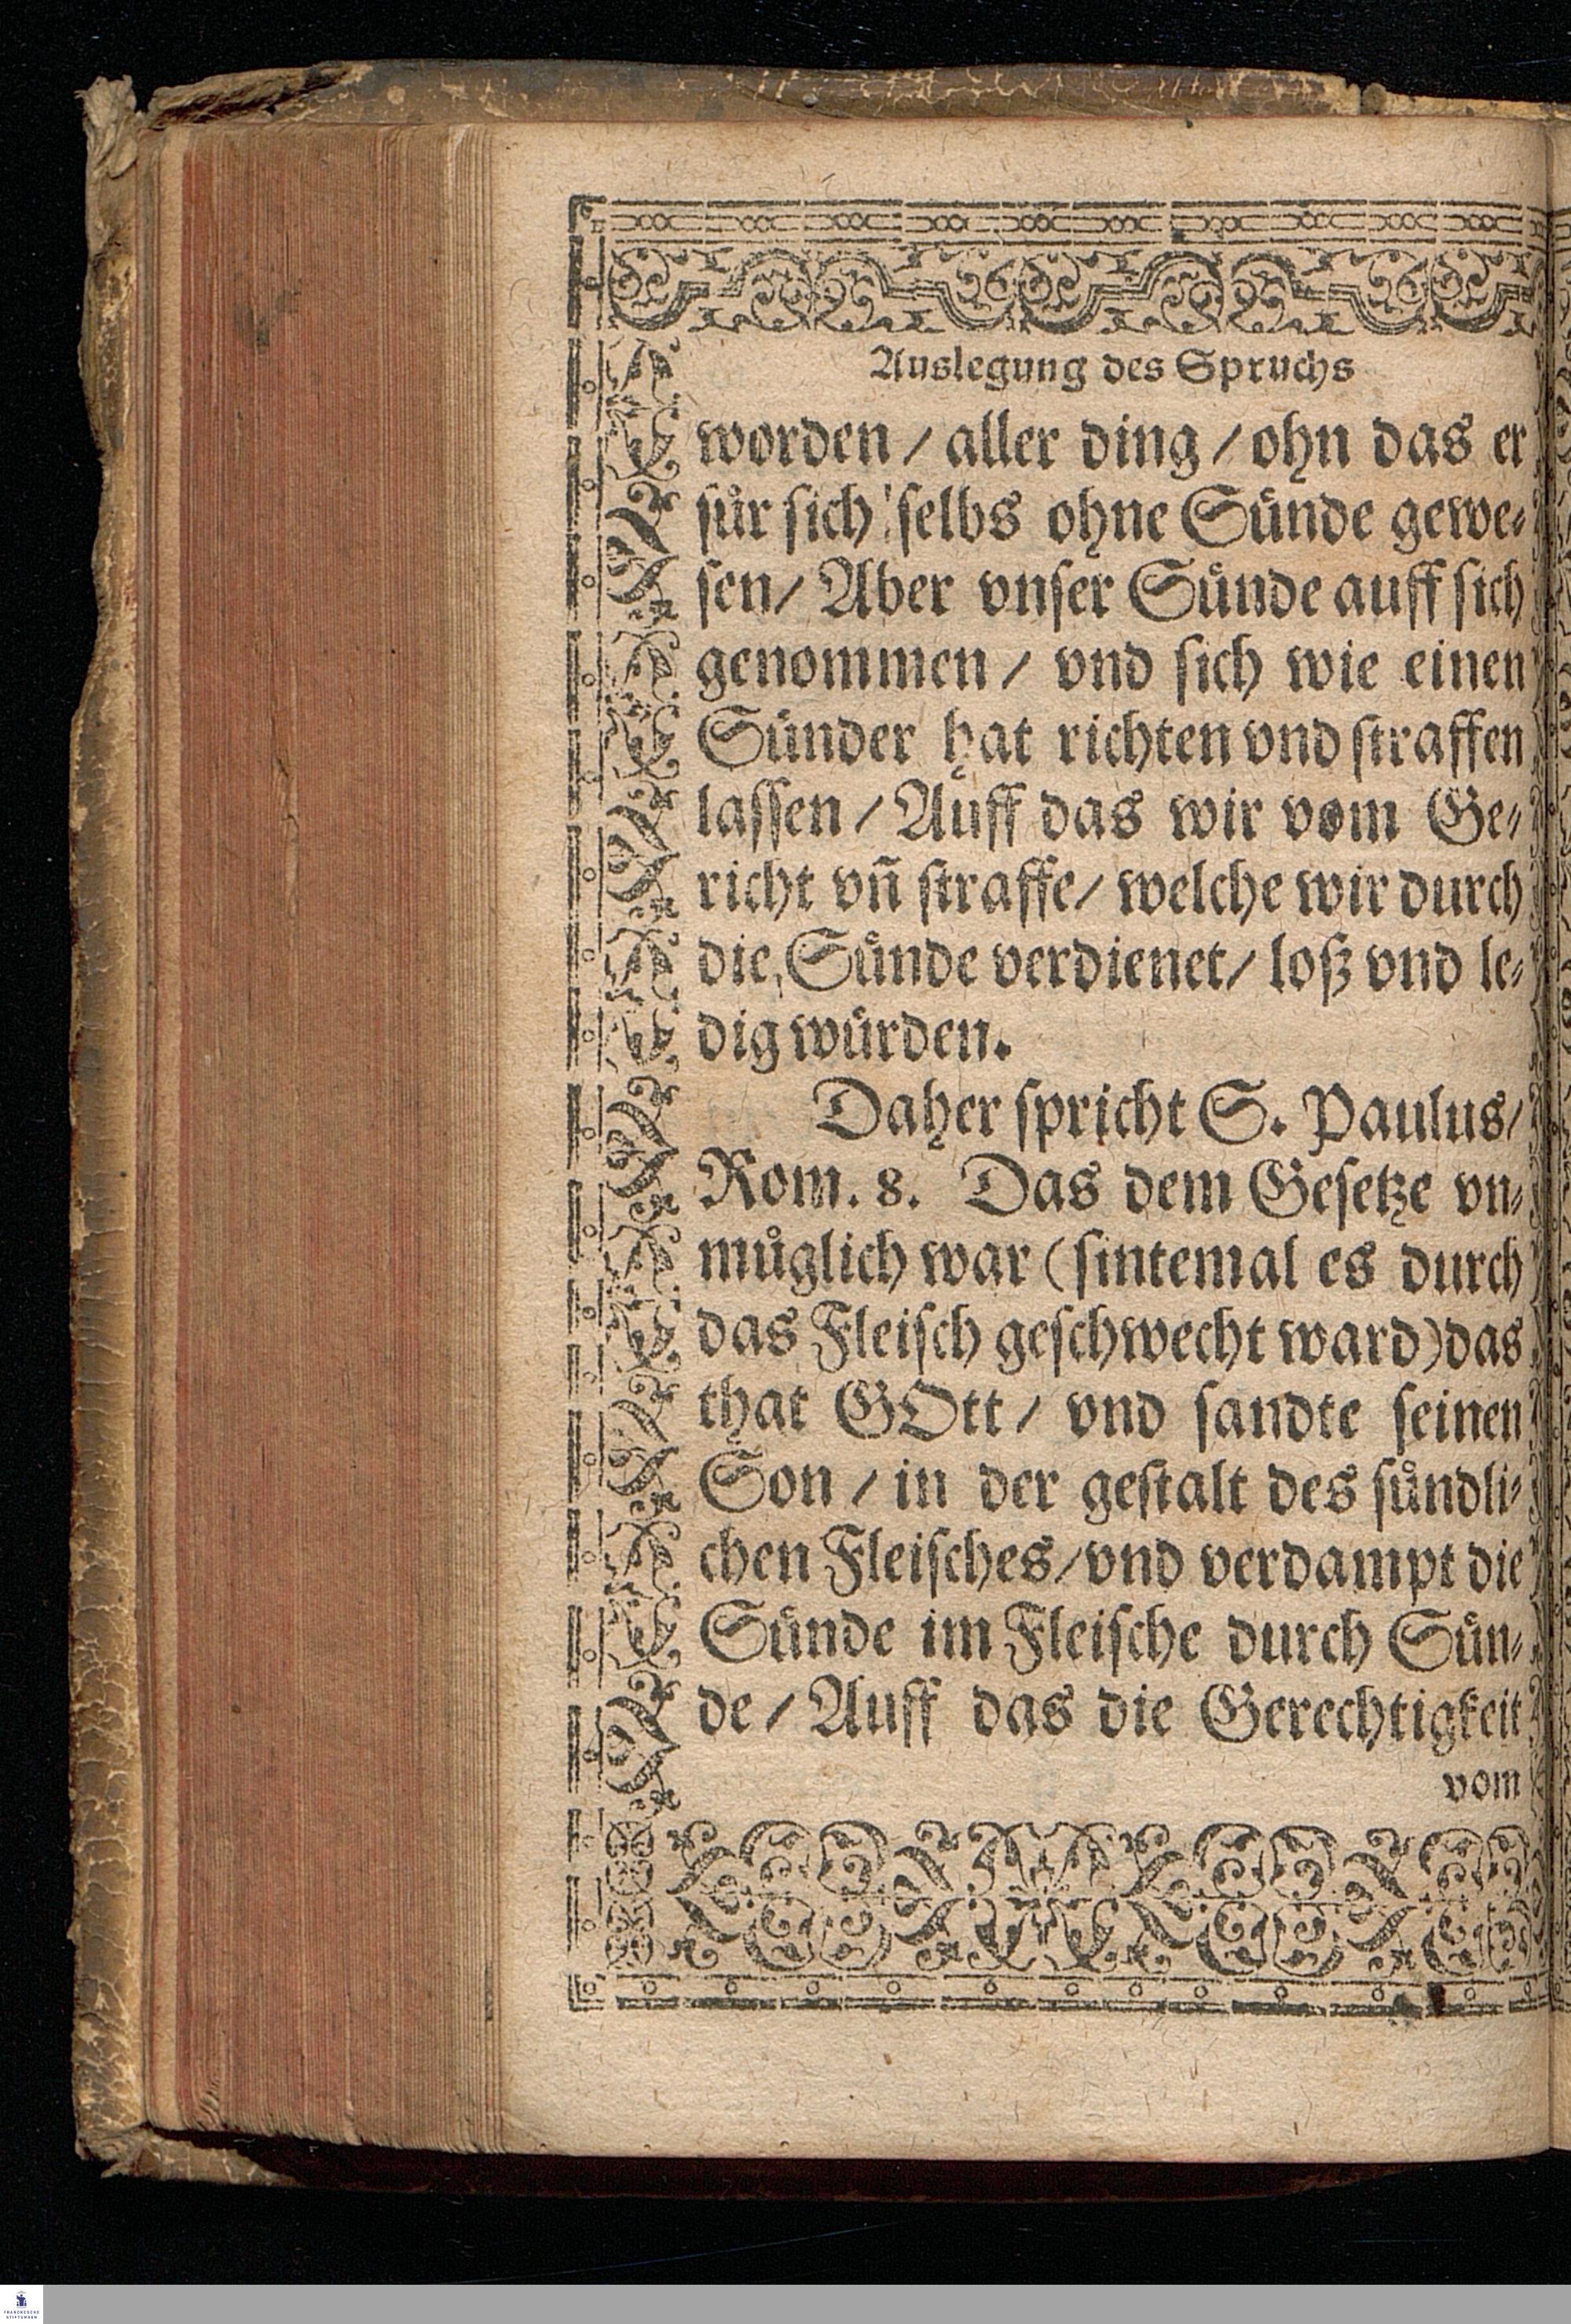 Auslegung des Spruchs
worden / aller ding / ohn das er
fuͤr sich selbs ohne Suͤnde gewe⸗
sen / Aber vnser Suͤnde auff sich
genommen / vnd sich wie einen
Suͤnder hat richten vnd straffen
lassen / Auff das wir vom Ge⸗
richt vñ straffe / welche wir durch
die Suͤnde verdienet / loß vnd le⸗
dig wuͤrden.
Daher spricht S. Paulus /
Rom. 8. Das dem Gesetze vn⸗
muͤglich war (sintemal es durch
das Fleisch geschwecht ward) das
that GOtt / vnd sandte seinen
Son / in der gestalt des suͤndli⸗
chen Fleisches / vnd verdampt die
Suͤnde im Fleische durch Suͤn⸗
de / Auff das die Gerechtigkeit
vom
FRANCKESCHE
STIFTUNGEN